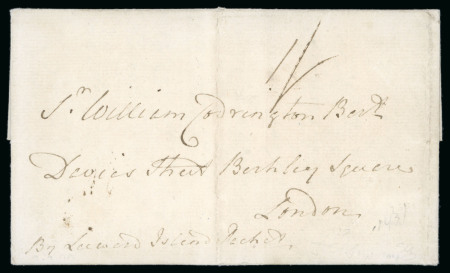 1/
Sr. William Codrington Bert.
Davies Street Berkley Square
London
By Leeward Island Packet.